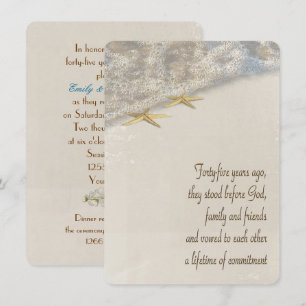 In honor
forty-five ye
pl
Emily &
as they r
on Saturda
Two thou
at six o'c
125
You
Dinner re
the ceremony
1266
Forty-five years ago,
they stood before God,
family and friends
and vowed to each other
a lifetime of commitment